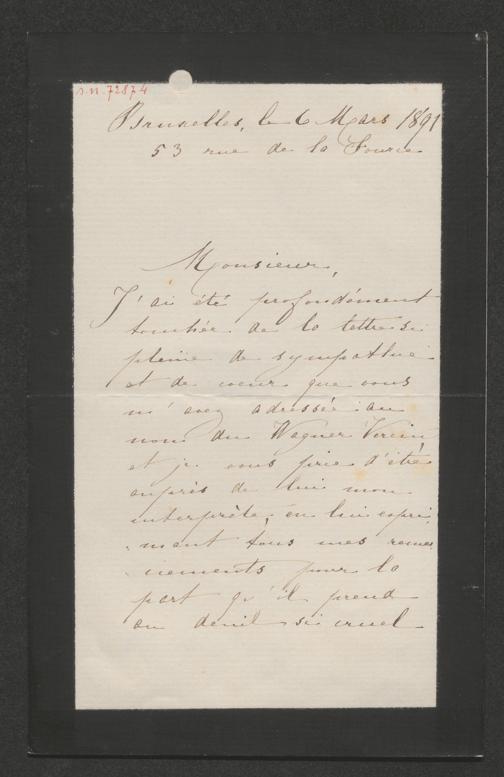 s.n. 72874
Bruxelles, le 6 Mars 1891
53 rue de la Source
Monsieur,
J'ai été profondément
touchée de la lettre si
pleine de sympathie
et de coeur que vous
m'avez adressée au
nom du Wagner Verein,
et je vous prie d'être
auprès de lui mon
interprète, en lui expri-
mant tous mes remer-
ciements pour la
part qu'il prend
au deuil si cruel